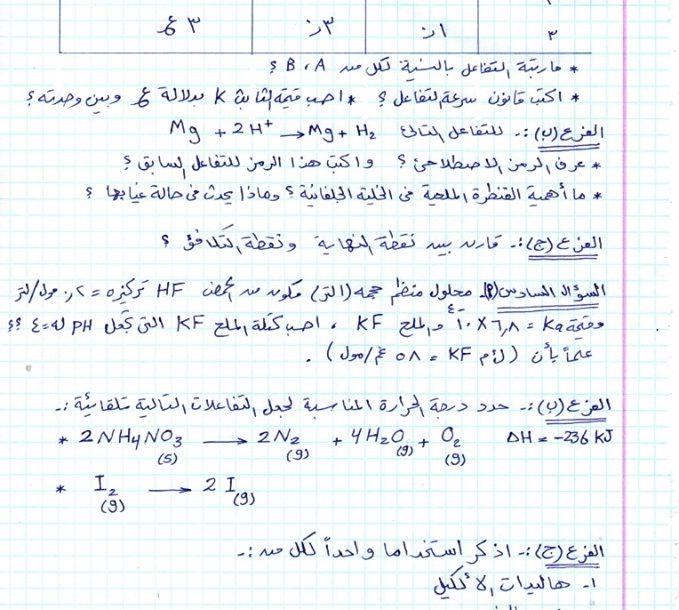 ٣ ٠,١ ٠,٣ ٣ ع
* ما رتبة التفاعل بالنسبة لكل من B ، A ؟
* اكتب قانون سرعة التفاعل ؟ * احسب قيمة الثابت K بدلالة ع وبين وحدته ؟
الفرع (ب):- للتفاعل التالي Mg + 2H+ → Mg + H2
* عرف الرمز الاصطلاحي ؟ واكتب هذا الرمز للتفاعل السابق ؟
* ما أهمية القنطرة الملحية في الخلية الجلفانية ؟ وماذا يحدث في حالة غيابها ؟
الفرع (ج):- قارن بين نقطة النهاية ونقطة التكافؤ ؟
السؤال السادس (أ) محلول منظم حجمه (١ لتر) مكون من الحمض HF تركيزه = ٠,٢ مول/لتر
وقيمة Ka = ٦,٨ × ١٠-٤ والملح KF ، احسب كتلة الملح KF التي تجعل PH له = ٤ ؟؟
علماً بأن ( ك.م KF = ٥٨ غم/مول ) .
الفرع (ب):- حدد درجة الحرارة المناسبة لجعل التفاعلات التالية تلقائية :-
* 2NH4NO3 (S) → 2N2 (g) + 4H2O (g) + O2 (g) ΔH = -236 KJ
* I2 (g) → 2 I (g)
الفرع (ج):- اذكر استخداما واحداً لكل من :-
١- هاليدات الألكيل